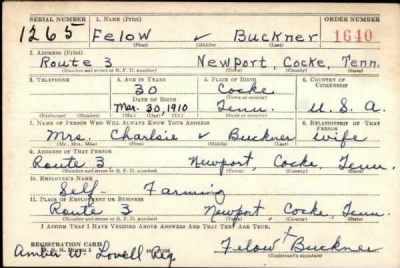 SERIAL NUMBER 1. NAME (Print) ORDER NUMBER
1265 Felow ✓ Buckner 1640
(First) (Middle) (Last)
2. ADDRESS (Print)
Route 3 Newport, Cocke, Tenn.
(Number and street or R. F. D. number) (Town) (County) (State)
3. TELEPHONE 4. AGE IN YEARS 5. PLACE OF BIRTH 6. COUNTRY OF CITIZENSHIP
30 Cocke
DATE OF BIRTH (Town or county)
Mar. 30, 1910 Tenn. U. S. A.
(Mo.) (Day) (Yr.) (State or country)
7. NAME OF PERSON WHO WILL ALWAYS KNOW YOUR ADDRESS 8. RELATIONSHIP OF THAT PERSON
Mrs. Charlsie ✓ Buckner wife
(Mr., Mrs., Miss) (First) (Middle) (Last)
9. ADDRESS OF THAT PERSON
Route 3 Newport, Cocke, Tenn.
(Number and street or R. F. D. number) (Town) (County) (State)
10. EMPLOYER'S NAME
Self - Farming
11. PLACE OF EMPLOYMENT OR BUSINESS
Route 3 Newport, Cocke, Tenn.
(Number and street or R. F. D. number) (Town) (County) (State)
I AFFIRM THAT I HAVE VERIFIED ABOVE ANSWERS AND THAT THEY ARE TRUE.
REGISTRATION CARD
D. S. S. Form 1
Amber W. Lovell Reg. Felow + Buckner
(Registrant's signature)